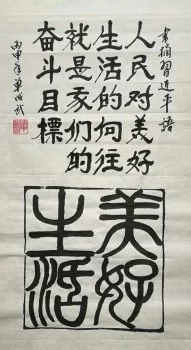 書摘習近平語
人民对美好
生活的向往
就是我们的
奮斗目標
丙申年
美好
生活